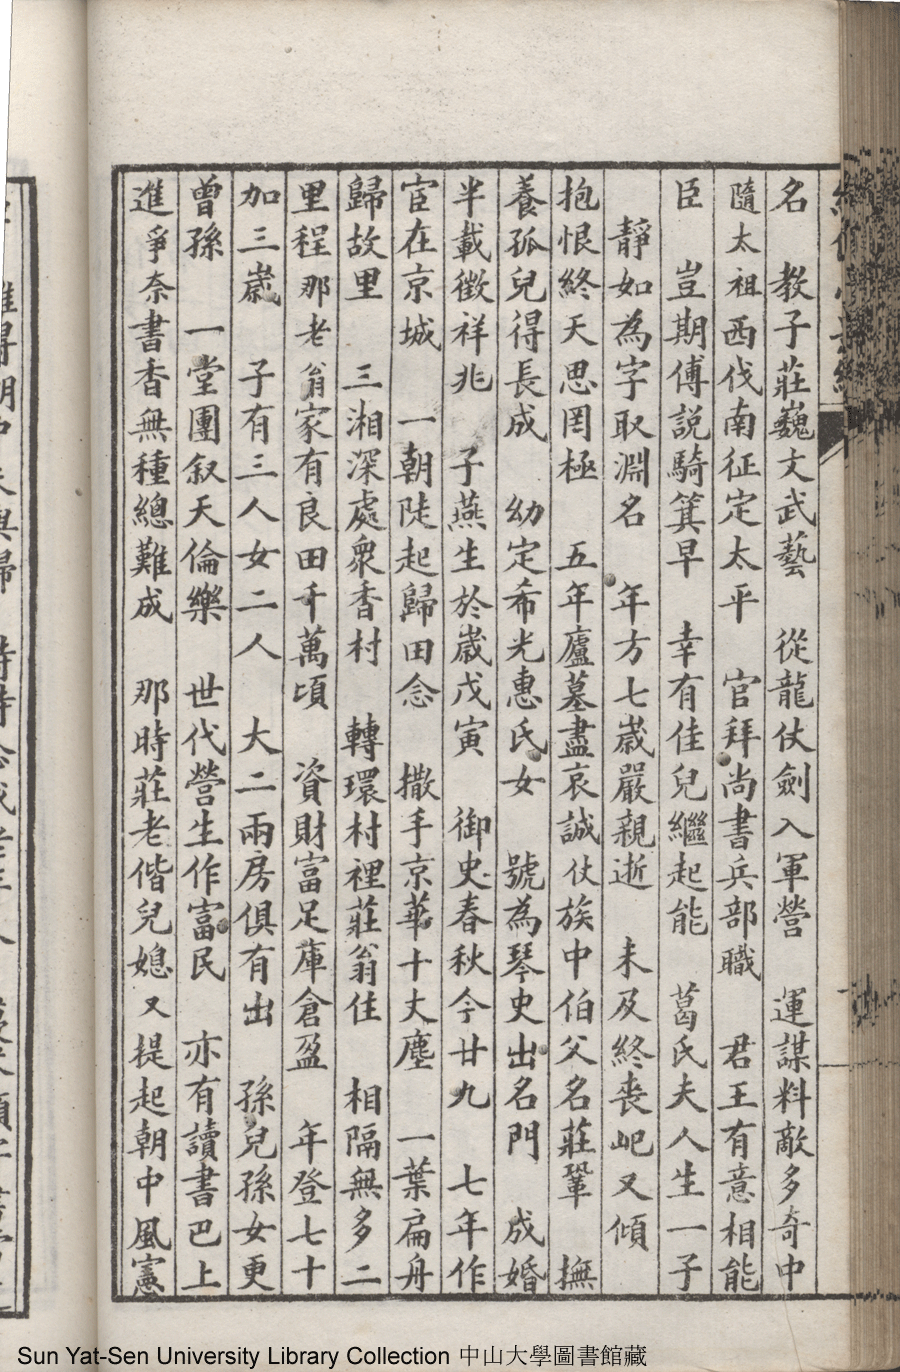 名　教子莊巍文武藝　從龍仗劍入軍營　運謀料敵多奇中
隨太祖西伐南征定太平　官拜尚書兵部職　君王有意相能
臣　豈期傅説騎箕早　幸有佳兒繼起能　葛氏夫人生一子
靜如為字取淵名　年方七歲嚴親逝　未及終喪屺又傾
抱恨終天思罔極　五年廬墓盡哀誠仗族中伯父名莊鞏　撫
養孤兒得長成　幼定希光惠氏女　號為琴史出名門　成婚
半載徵祥兆　子燕生於歲戊寅　御史春秋今廿九　七年作
宦在京城　一朝陡起歸田念　撒手京華十丈塵　一葉扁舟
歸故里　三湘深處衆香村　轉環村裡莊翁住　相隔無多二
里程那老翁家有良田千萬頃　資財富足庫倉盈　年登七十
加三歲　子有三人女二人　大二兩房俱有出　孫兒孫女更
曾孫　一堂團叙天倫樂　世代營生作富民　亦有讀書巴上
進爭奈書香無種總難成　那時莊老偕兒媳又提起朝中風憲
Sun Yat-Sen University Library Collection 中山大學圖書館藏